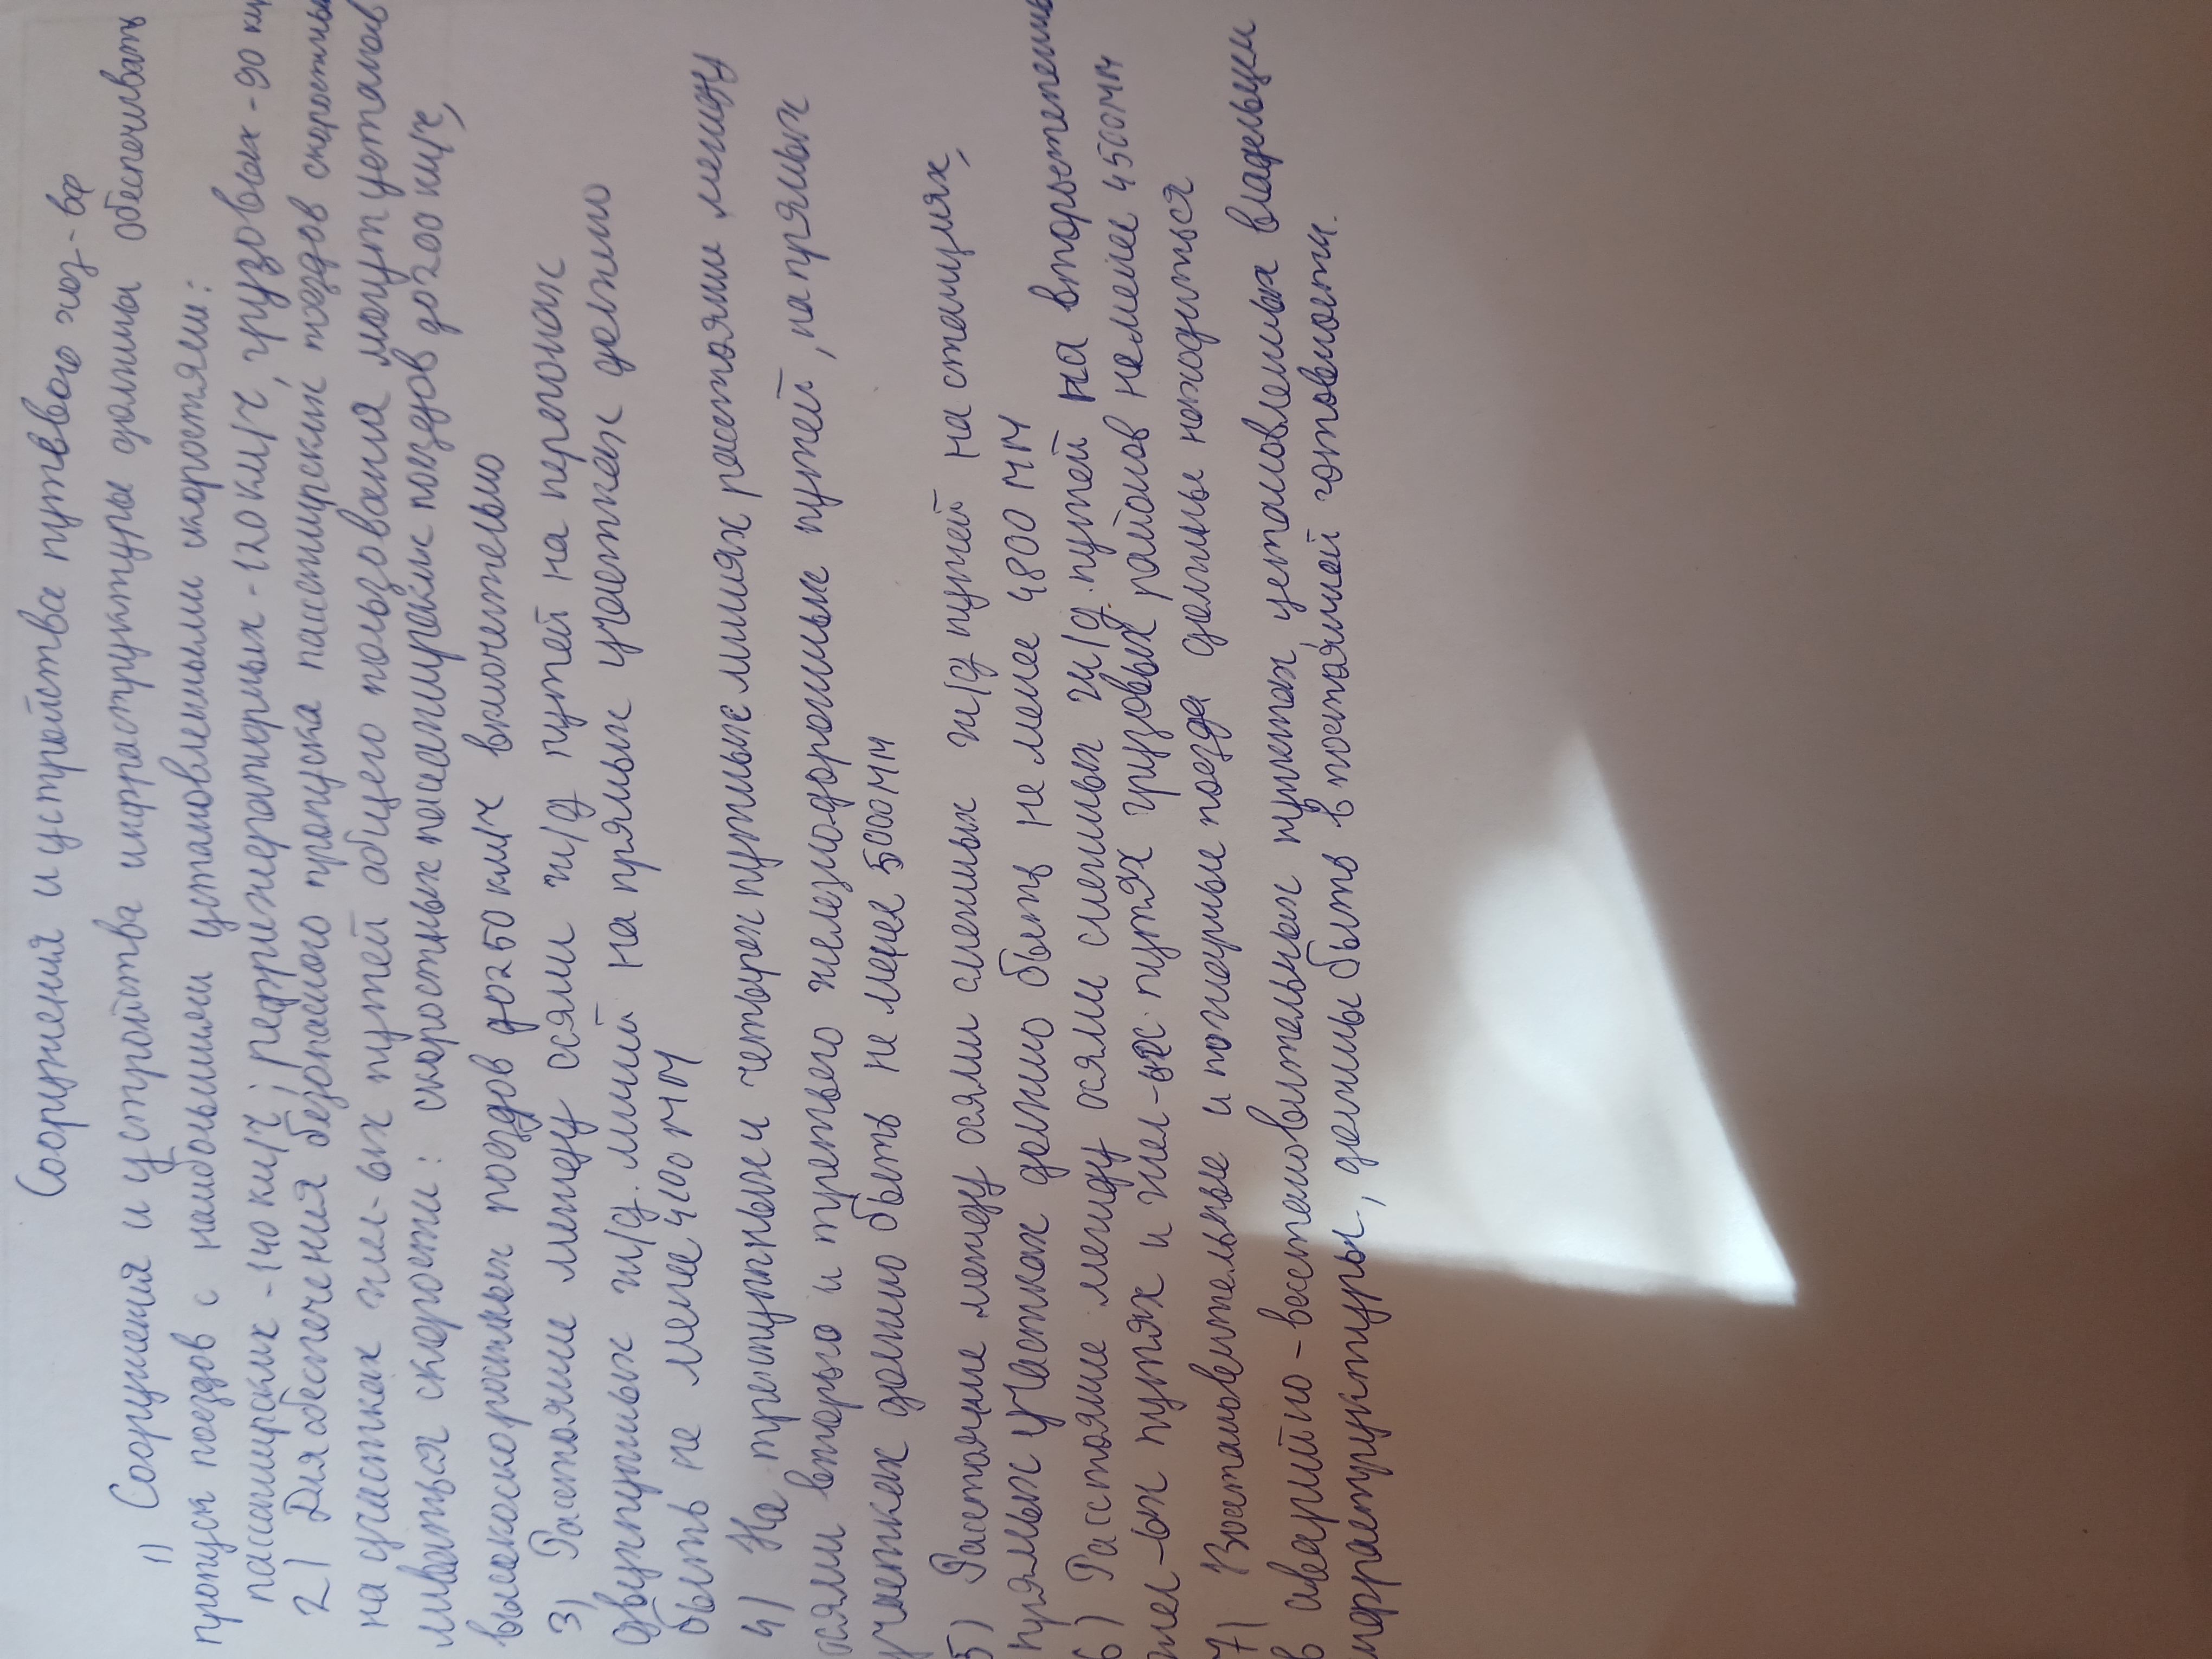 Сооружения и устройства путевого хоз-ва
1) Сооружения и устройства инфраструктуры должны обеспечивать
пропуск поездов с наибольшими установленными скоростями:
пассажирских - 140 км/ч; рефрижераторных - 120 км/ч, грузовых - 90 км
2) Для обеспечения безопасного пропуска пассажирских поездов скоростных
на участках жел-ых путей общего пользования могут устанав
ливаться скорости: скоростных пассажирских поездов до 200 км/ч,
высокоскоростных поездов до 250 км/ч включительно
3) Расстояние между осями ж/д путей на перегонах
двухпутных ж/д. линий на прямых участках должно
быть не менее 4100 мм
4) На трехпутных и четырехпутных линиях расстояние между
осями второго и третьего железнодорожных путей, на прямых
участках должно быть не менее 5000 мм
5) Расстояние между осями смежных ж/д путей на станциях,
прямых участках должно быть не менее 4800 мм
6) Расстояние между осями смежных ж/д. путей на второстепенных
жел-ых путях и жел- путях грузовых районов не менее 4500мм
7) Восстановительные и пожарные поезда должны находиться
в аварийно - восстановительных пунктах установленных владельцем
инфраструктуры, должны быть в постоянной готовности.